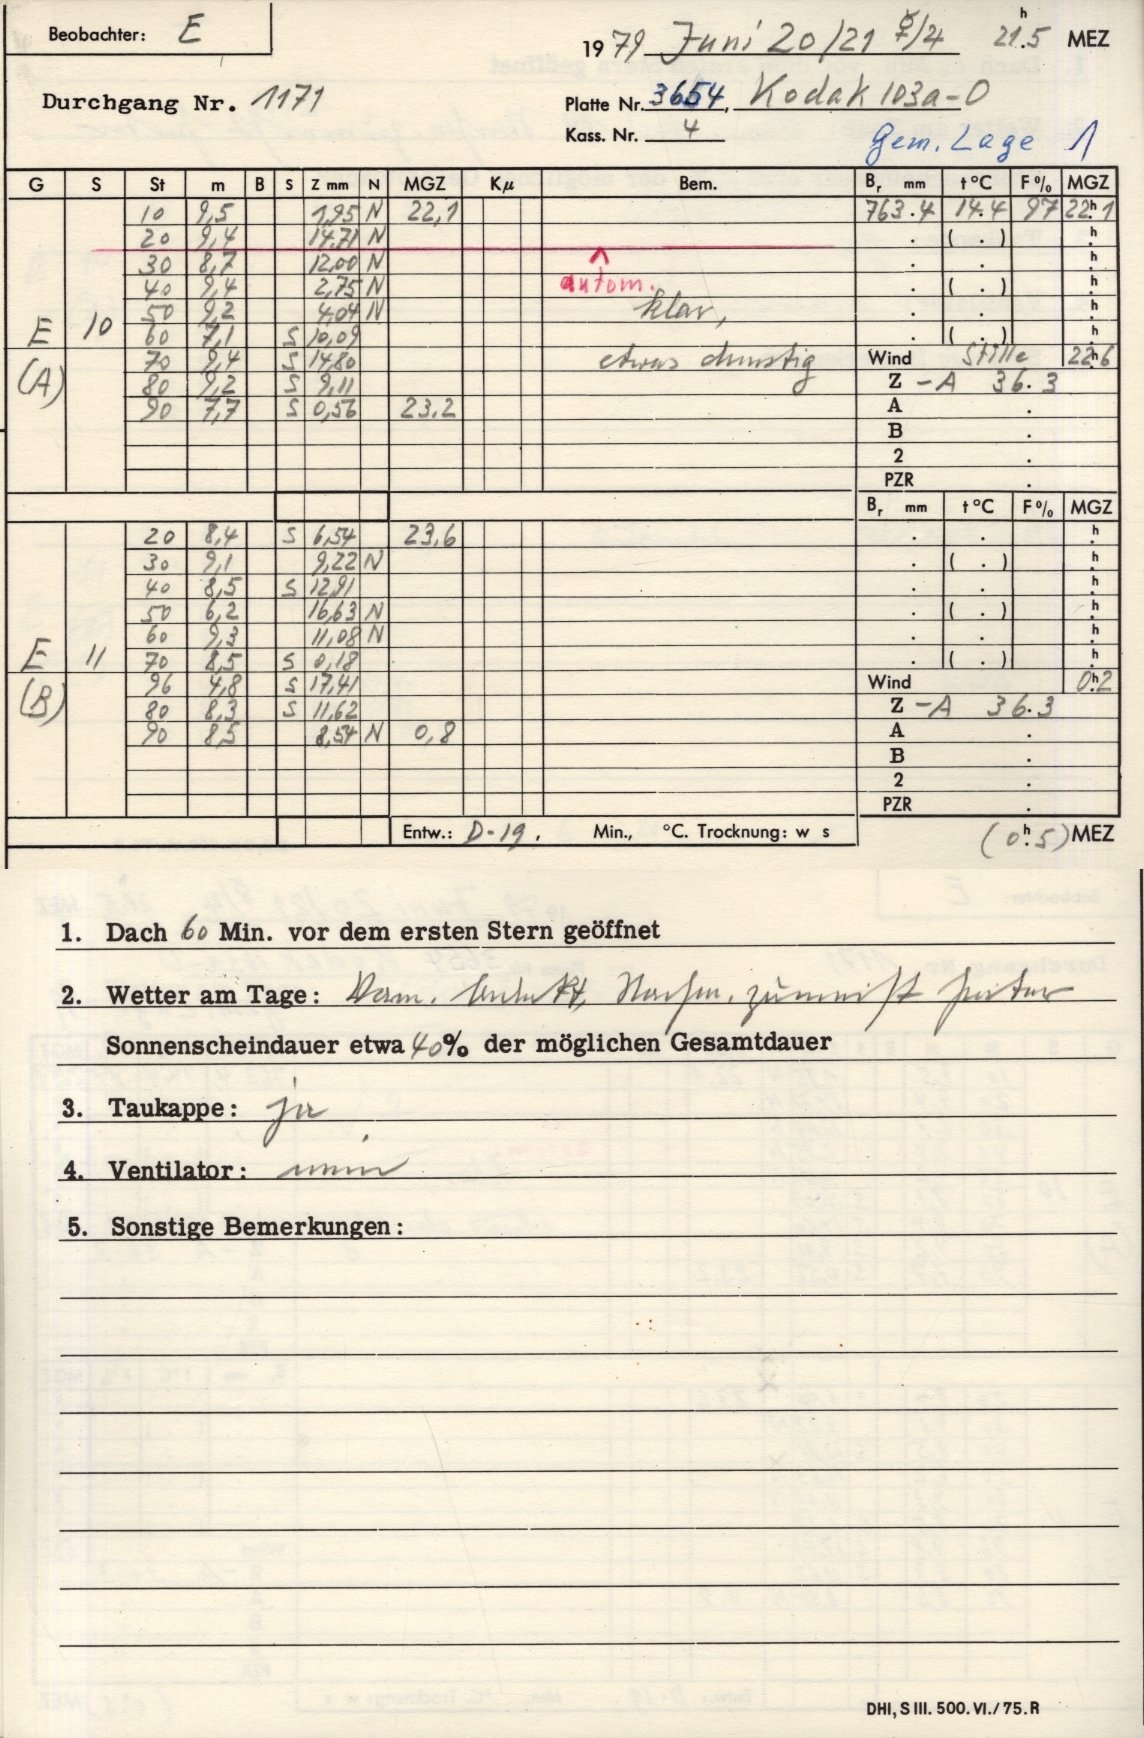 Beobachter: E
1979 Juni 20/21 ☿/4 21ʰ.5 MEZ
Durchgang Nr. 1171
Platte Nr. 3654, Kodak 103a-O
Kass. Nr. 4
Gem. Lage 1
G S St m B S Z mm N MGZ Kμ Bem. Bᵣ mm t°C F% MGZ
10 9,5 1,95 N 22,1 763.4 14.4 97 22ʰ.1
20 9,4 14,71 N . ( . ) ʰ.
30 8,7 12,00 N . . ʰ.
autom.
40 9,4 2,75 N . ( . ) ʰ.
50 9,2 4,04 N klar, . . ʰ.
E 10 60 7,1 S 10,09 . ( . ) ʰ.
70 9,4 S 14,80 etwas dunstig Wind Stille 22ʰ.6
(A) 80 9,2 S 9,11 Z -A 36.3
90 7,7 S 0,56 23,2 A .
B .
2 .
PZR .
Bᵣ mm t°C F% MGZ
20 8,4 S 6,54 23,6 . . ʰ.
30 9,1 9,22 N . ( . ) ʰ.
40 8,5 S 12,91 . . ʰ.
50 6,2 16,63 N . ( . ) ʰ.
60 9,3 11,08 N . . ʰ.
E 11 70 8,5 S 0,18 . ( . ) ʰ.
96 4,8 S 17,41 Wind 0ʰ.2
(B) 80 8,3 S 11,62 Z -A 36.3
90 8,5 8,54 N 0,8 A .
B .
2 .
PZR .
Entw.: D-19, Min., °C. Trocknung: w s (0ʰ.5) MEZ
1. Dach 60 Min. vor dem ersten Stern geöffnet
2. Wetter am Tage: Vorm. bedeckt, Nachm. zumeist heiter
Sonnenscheindauer etwa 40% der möglichen Gesamtdauer
3. Taukappe: ja
4. Ventilator: nein
5. Sonstige Bemerkungen:
DHI, S III. 500. VI./75. R